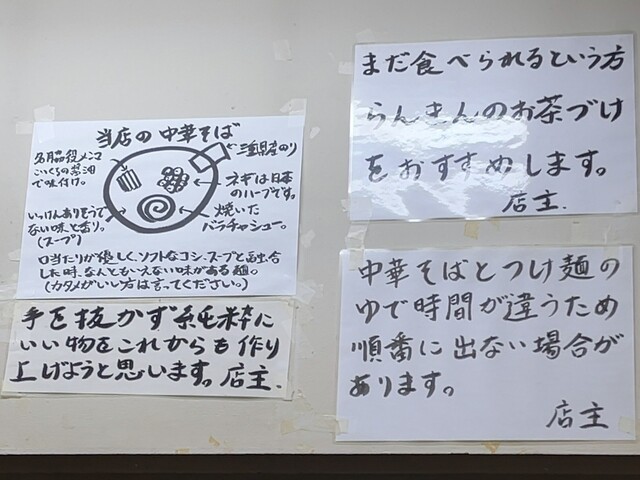 当店の中華そば
名脇役メンマ
こいくちの醤油
で味付け。
三重県産のり
ネギは日本
のハーブです。
いっけんありそうで
ない味と香り。
(スープ)
焼いた
バラチャシュー。
口当たりが優しく、ソフトなコシ、スープと融合
した時、なんともいえない味がある麺。
(カタメがいい方は言ってください。)
手を抜かず純粋に
いい物をこれからも作り
上げようと思います。店主.
まだ食べられるという方
らんきんのお茶づけ
をおすすめします。
店主.
中華そばとつけ麺の
ゆで時間が違うため
順番に出ない場合が
あります。
店主